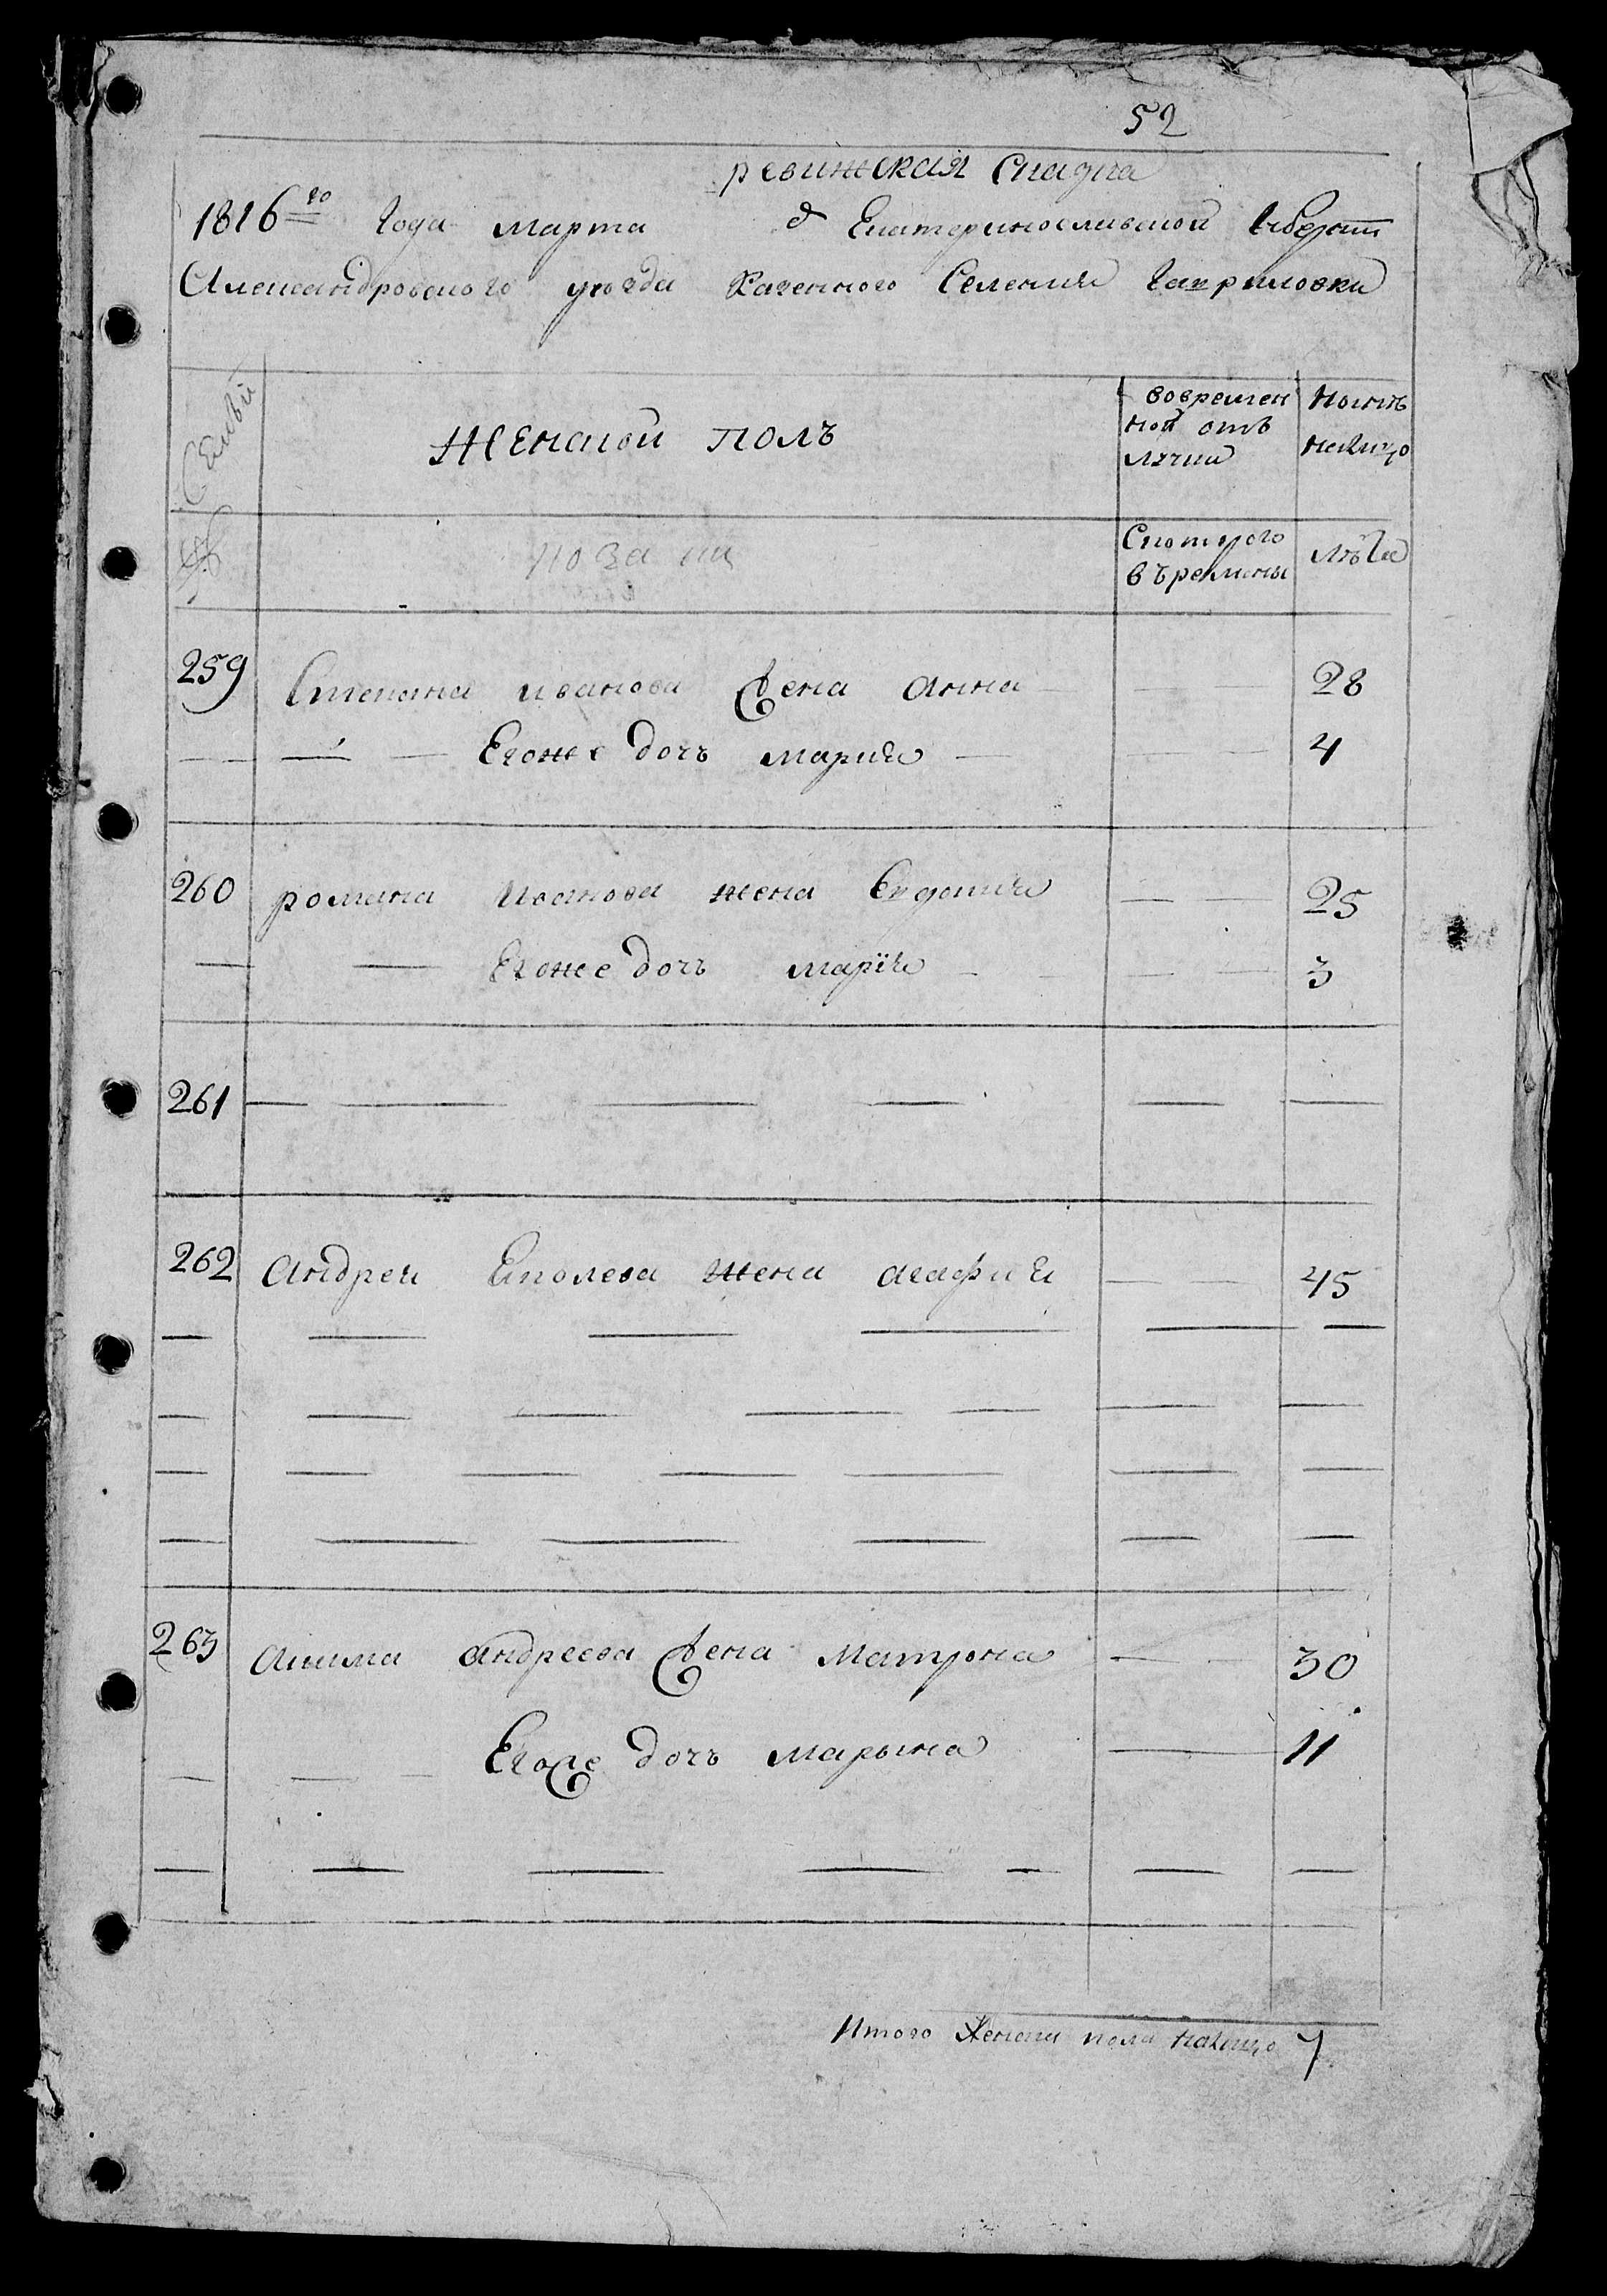 52
ревижская Сказка
1816го года марта д Екатеринославской губернии
Александровского уезда Казенного Селения Гавриловки
Семьи
женской полъ
вовремен
ной отъ
лучки
Ныне
налицо
№
Скоторого
въремены
лѣта
259 Степана иванова жена Анна 28
Егоже дочъ мария 4
260 романа Иванова жена Евдокия 25
Егоже дочъ марія 3
261
262 Андрея жена агафия 45
263 Акима Андреева жена Матрона 30
Егоже дочъ марына 11
Итого Женска пола налицо 7